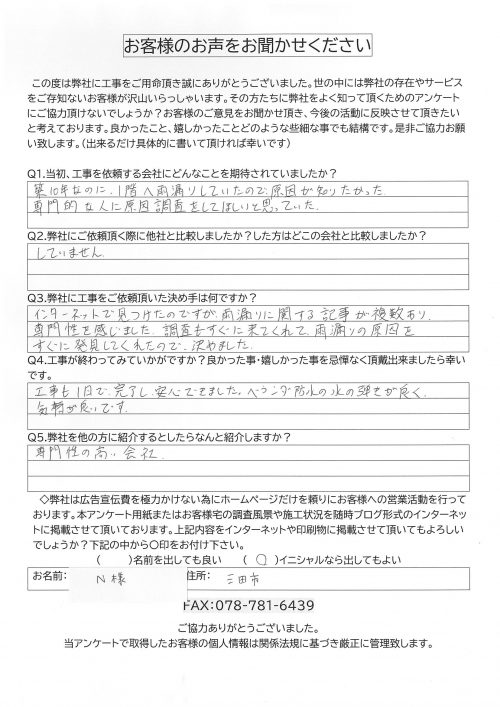 お客様のお声をお聞かせください
この度は弊社に工事をご用命頂き誠にありがとうございました。世の中には弊社の存在やサービス
をご存知ないお客様が沢山いらっしゃいます。その方たちに弊社をよく知って頂くためのアンケート
にご協力頂けないでしょうか？お客様のご意見をお聞かせ頂き、今後の活動に反映させて頂きたい
と考えております。良かったこと、嬉しかったことどのような些細な事でも結構です。是非ご協力お願
い致します。（出来るだけ具体的に書いて頂ければ幸いです）
Q1.当初、工事を依頼する会社にどんなことを期待されていましたか？
築10年なのに、1階へ雨漏りしていたので原因が知りたかった。
専門的な人に原因調査をしてほしいと思っていた。
Q2.弊社にご依頼頂く際に他社と比較しましたか？した方はどこの会社と比較しましたか？
していません。
Q3.弊社に工事をご依頼頂いた決め手は何ですか？
インターネットで見つけたのですが、雨漏りに関する記事が複数あり、
専門性を感じました。調査もすぐに来てくれて、雨漏りの原因を
すぐに発見してくれたので、決めました。
Q4.工事が終わってみていかがですか？良かった事・嬉しかった事を忌憚なく頂戴出来ましたら幸い
です。
工事も1日で完了し、安心できました。ベランダ防水の水の弾きが良く、
気持が良いです。
Q5.弊社を他の方に紹介するとしたらなんと紹介しますか？
専門性の高い会社
◇弊社は広告宣伝費を極力かけない為にホームページだけを頼りにお客様への営業活動を行って
おります。本アンケート用紙またはお客様宅の調査風景や施工状況を随時ブログ形式のインターネッ
トに掲載させて頂いております。上記内容をインターネットや印刷物に掲載させて頂いてもよろしい
でしょうか？下記の中から〇印をお付け下さい。
（　）名前を出しても良い　（〇）イニシャルなら出してもよい
お名前：　N様　住所：　三田市
FAX：078-781-6439
ご協力ありがとうございました。
当アンケートで取得したお客様の個人情報は関係法規に基づき厳正に管理致します。